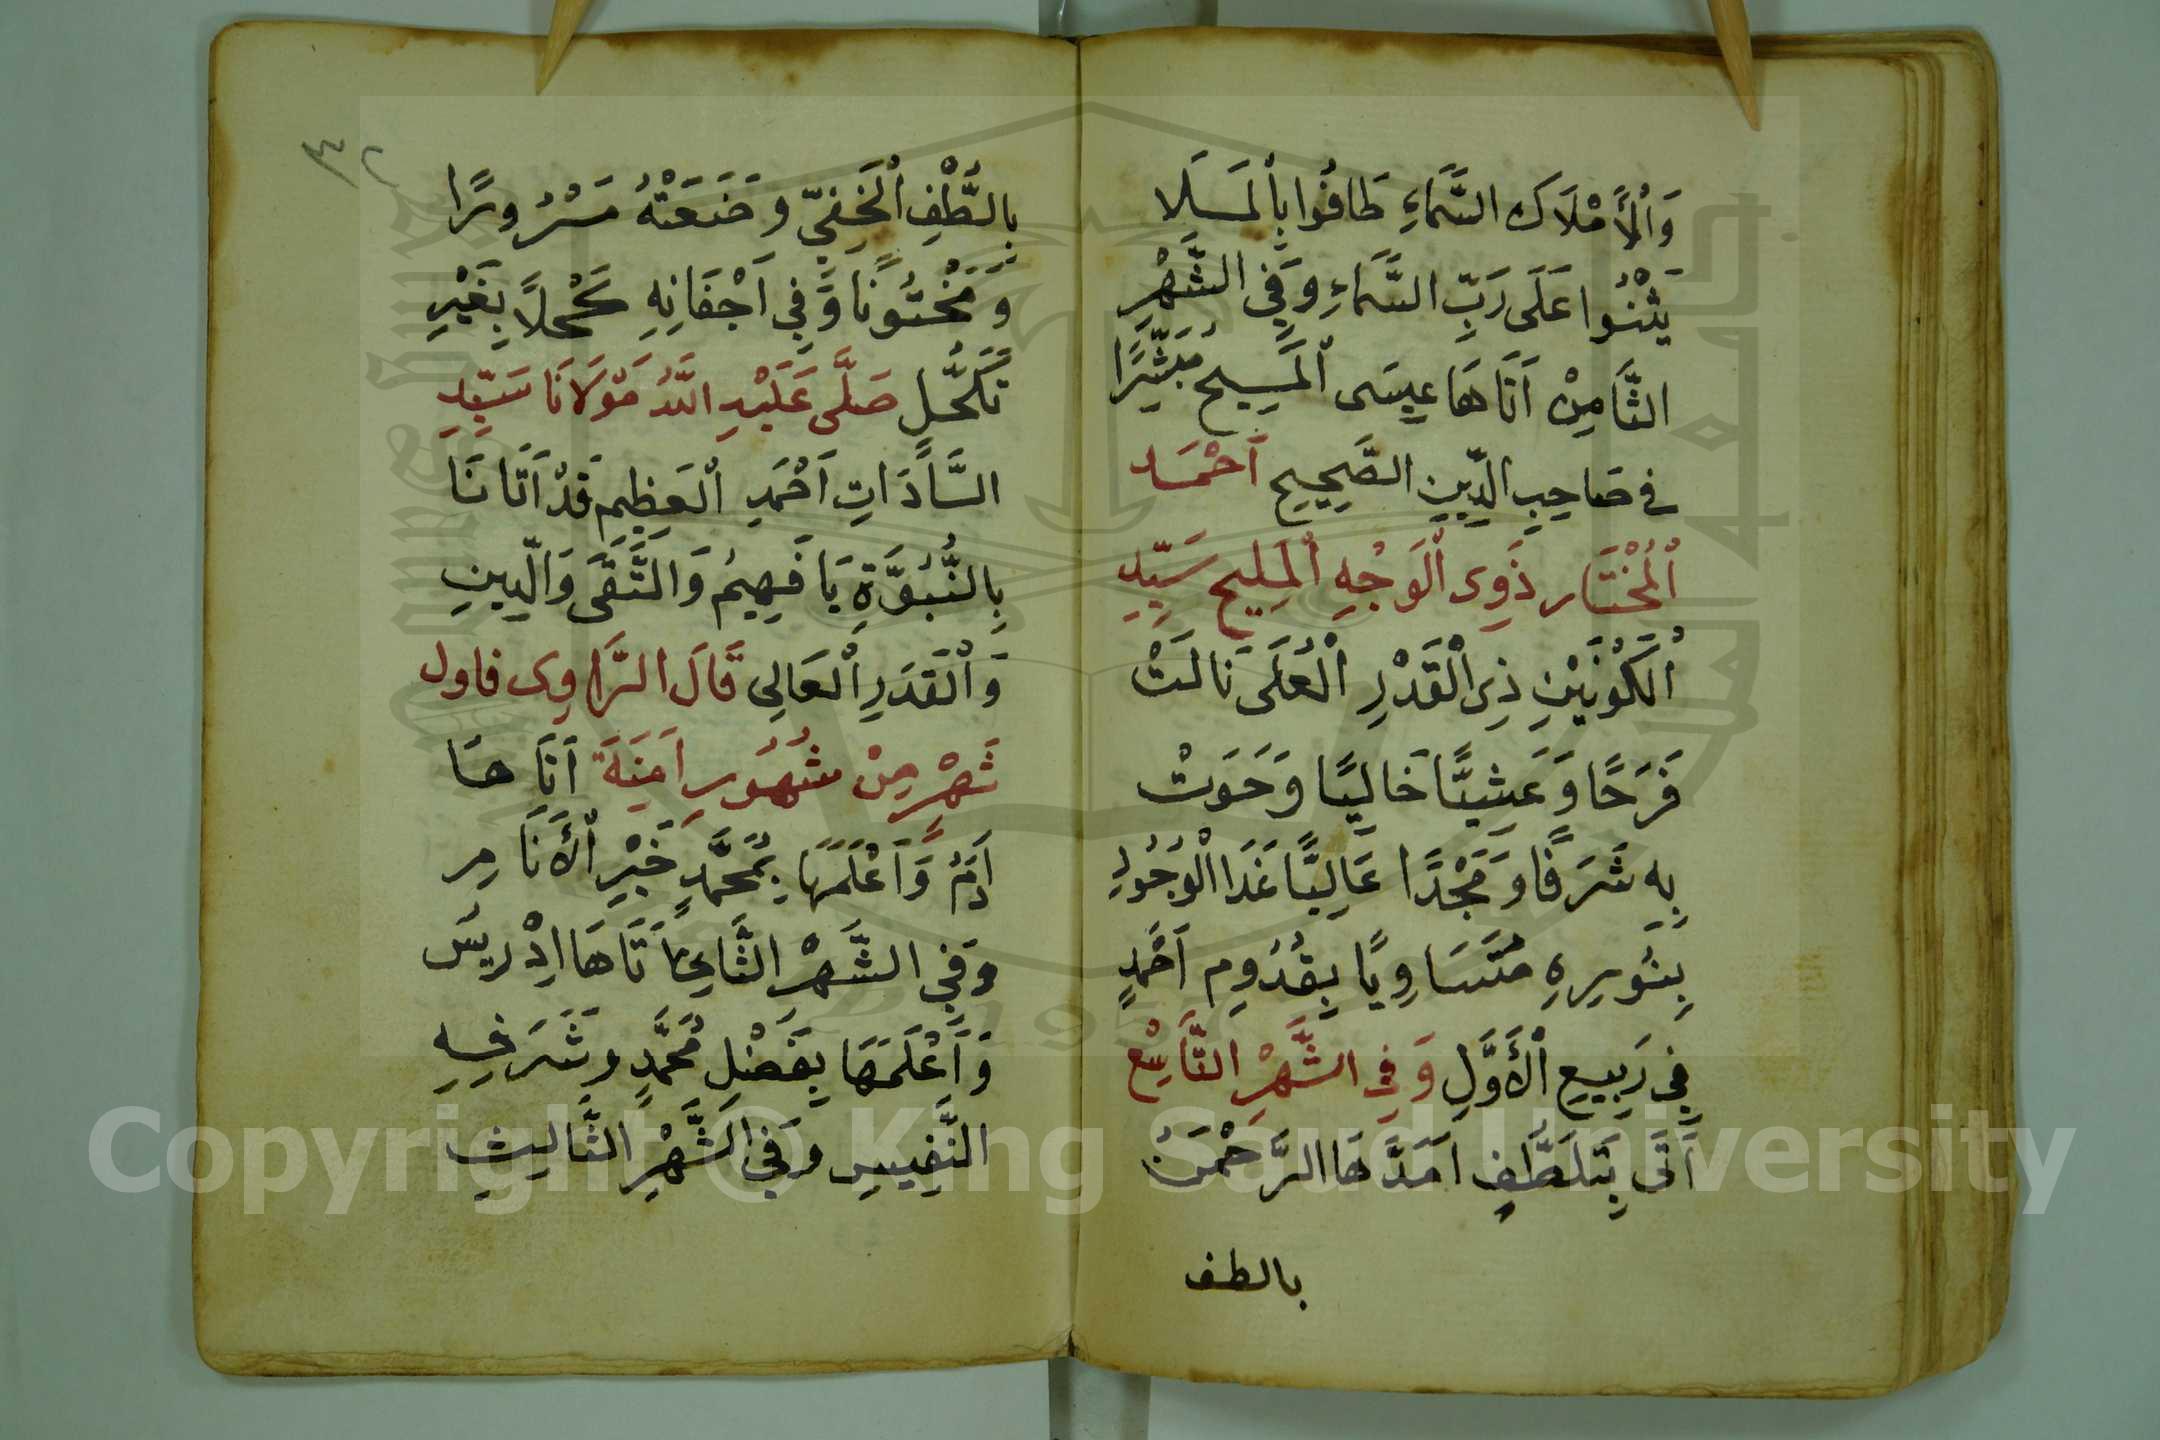 وَالْأَمْلَاك السَّمَاءِ طَافُوا بِالْمَلَا
يَثْنُوا عَلَى رَبِّ السَّمَاءِ وَفِي الشَّهْرِ
الثَّامِنْ اَتَاهَا عِيسَى الْمَسِيح مُبَشِّرًا
في صَاحِبِ الدِّينِ الصَّحِيحِ اَحْمَد
الْمُخْتَار ذَوِى الْوَجْهِ الْمَلِيح سَيِّدِ
الْكَوْنَيْنِ ذِي الْقَدْرِ الْعُلَى نَالَتْ
فَرَحًا وَعَشِيًّا خَالِيًا وَحَوَتْ
بِهِ شَرَفًا وَمَجْدًا عَالِيًّا غَدَا الْوُجُودِ
بِنُورِهِ مُتَسَاوِيًا بِقُدُومِ اَحْمَدٍ
فِي رَبِيعِ الْأَوَّلِ وَفِي الشَّهْرِ التَّاسِعْ
اَتَى بِتَلَطُّفٍ اَمَدَّهَا الرَّحْمَنُ
بالطف
بِاللُّطْفِ الْخَفِيِّ وضَعَتْهُ مَسْرُورًا
وَمَخْتُونًا وَفِي اَجْفَانِهِ كَحْلاً بِغَيْرِ
تَكَحُّلِ صَلَّى عَلَيْهِ اللَّهُ مَوْلَانَا سَيِّدِ
السَّادَاتِ اَحْمَدِ الْعَظِيمِ قَدْ اَتَانَا
بِالنُّبُوَّةِ يَا فَهِيمُ وَالتَّقَى وَالدِّينِ
وَالْقَدَرِ الْعَالِي قَالَ الرَّاوِى فاول
شَهْرٍ مِنْ شُهُورِ اَمِنَةَ اَتَاهَا
اَدَمُ وَاَعْلَمَهَا بِمُحَمَّدٍ خَيْرِ الْأَنَامِ
وَفِي الشَّهْرِ الثَّانِي اَتَاهَا اِدْرِيسَ
وَاَعْلَمَهَا بِفَضْلِ مُحَمَّدٍ وشَرَفِهِ
النَّفِيسِ وفِي الشَّهْرِ الثَّالِثِ
Copyright © King Saud University
1957